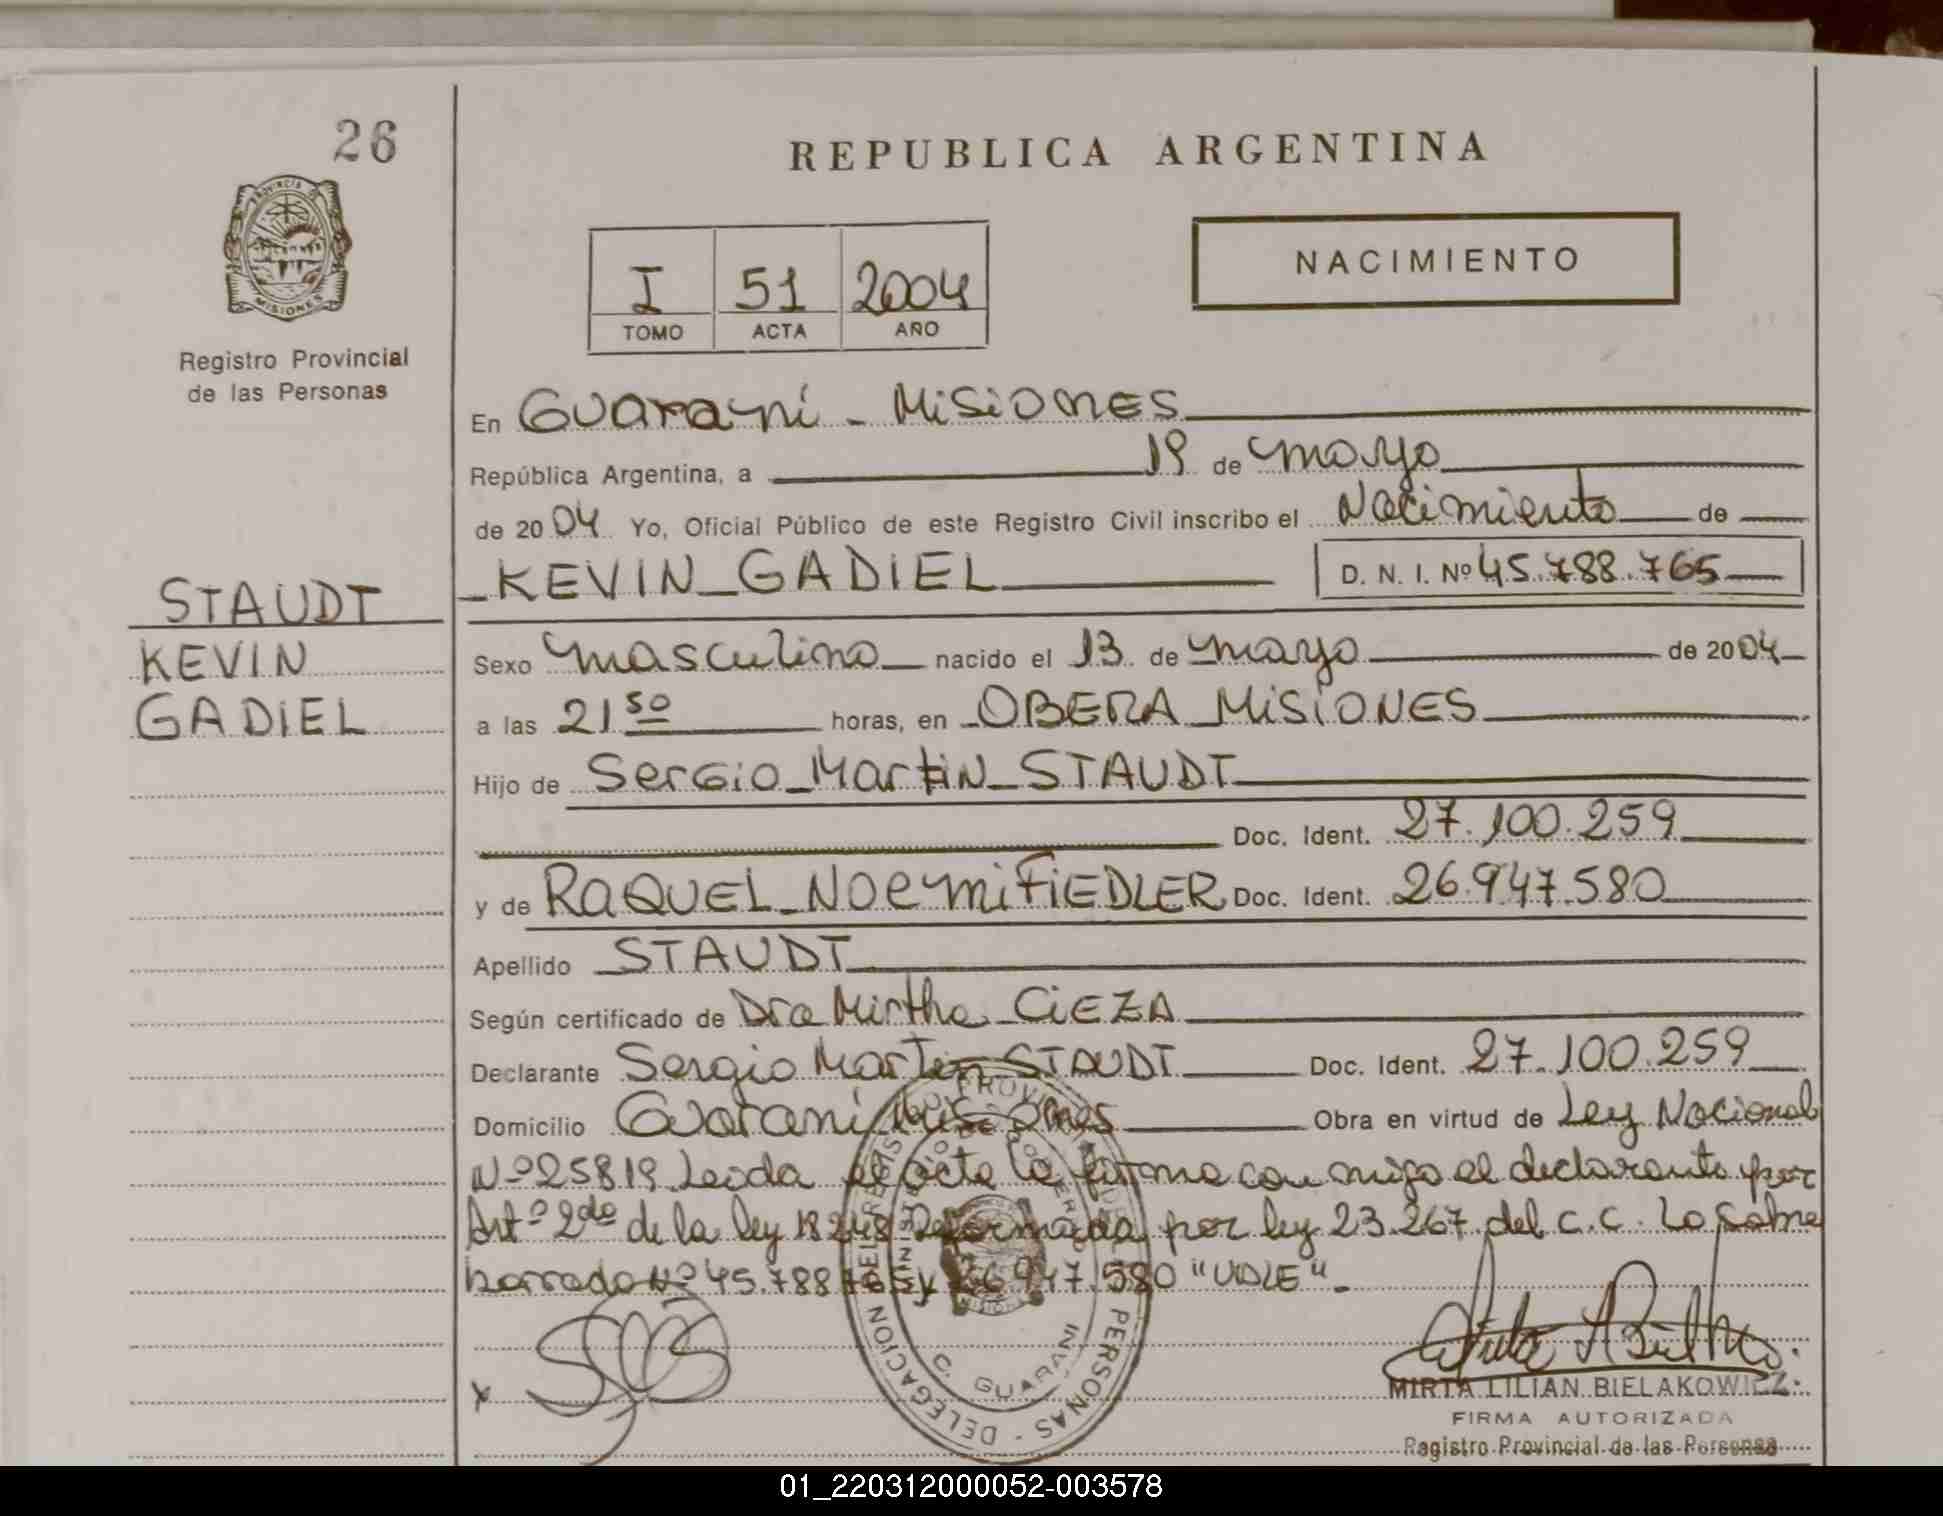 26
REPUBLICA ARGENTINA
PROVINCIA DE
MISIONES
Registro Provincial
de las Personas
I 51 2004
TOMO ACTA AÑO
NACIMIENTO
En Guaraní - Misiones
República Argentina, a 19 de mayo
de 2004 Yo, Oficial Público de este Registro Civil inscribo el Nacimiento de
KEVIN GADIEL D. N. I. Nº 45.788.765
STAUDT
KEVIN
GADIEL
Sexo masculino nacido el 13 de mayo de 2004
a las 21 50 horas, en OBERA MISIONES
Hijo de Sergio Martin STAUDT
Doc. Ident. 27.100.259
y de RAQUEL NOEMI FIEDLER Doc. Ident. 26.947.580
Apellido STAUDT
Según certificado de Dra Mirtha CIEZA
Declarante Sergio Martin STAUDT Doc. Ident. 27.100.259
Domicilio Guaraní Misiones Obra en virtud de Ley Nacional
Nº 25819. Leida el acta la firma con migo el declarante y por
Art º 2do de la ley 18248 Reformada por ley 23.267 del c.c. Lo Sobre
borrado Nº 45.788.765 y 26.947.580 "VALE".-
x
DELEGACION
PERSONAS
G. GUARANI
MIRTA LILIAN BIELAKOWICZ
FIRMA AUTORIZADA
Registro Provincial de las Personas
01_220312000052-003578